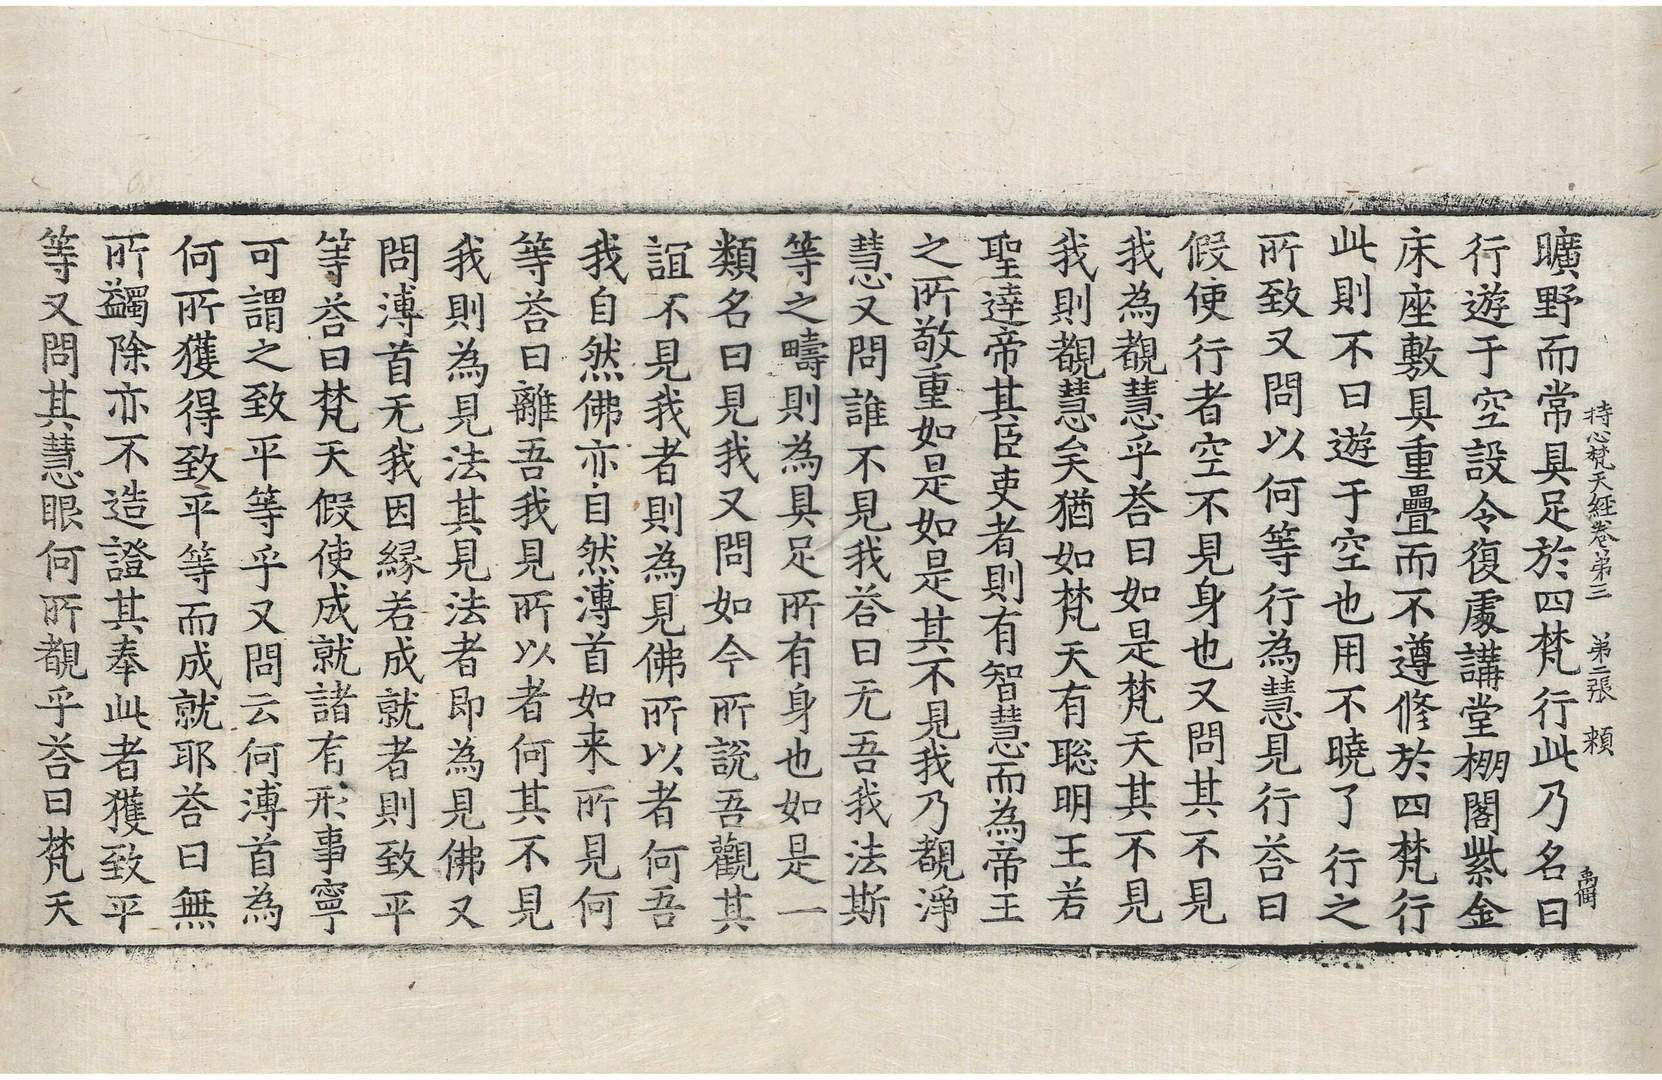 持心梵天經卷第三 第二張 頼
曠野而常具足於四梵行此乃名曰
行遊于空設令復處講堂棚閣紫金
床座敷具重疊而不遵修於四梵行
此則不曰遊于空也用不曉了行之
所致又問以何等行為慧見行荅曰
假使行者空不見身也又問其不見
我為覩慧乎荅曰如是梵天其不見
我則覩慧矣猶如梵天有聡明王若
聖達帝其臣吏者則有智慧而為帝王
之所敬重如是如是其不見我乃覩淨
慧又問誰不見我荅曰无吾我法斯
等之疇則為具足所有身也如是一
類名曰見我又問如今所說吾觀其
誼不見我者則為見佛所以者何吾
我自然佛亦自然溥首如来所見何
等荅曰離吾我見所以者何其不見
我則為見法其見法者即為見佛又
問溥首无我因縁若成就者則致平
等荅曰梵天假使成就諸有形事寧
可謂之致平等乎又問云何溥首為
何所獲得致平等而成就耶荅曰無
所蠲除亦不造證其奉此者獲致平
等又問其慧眼何所覩乎荅曰梵天